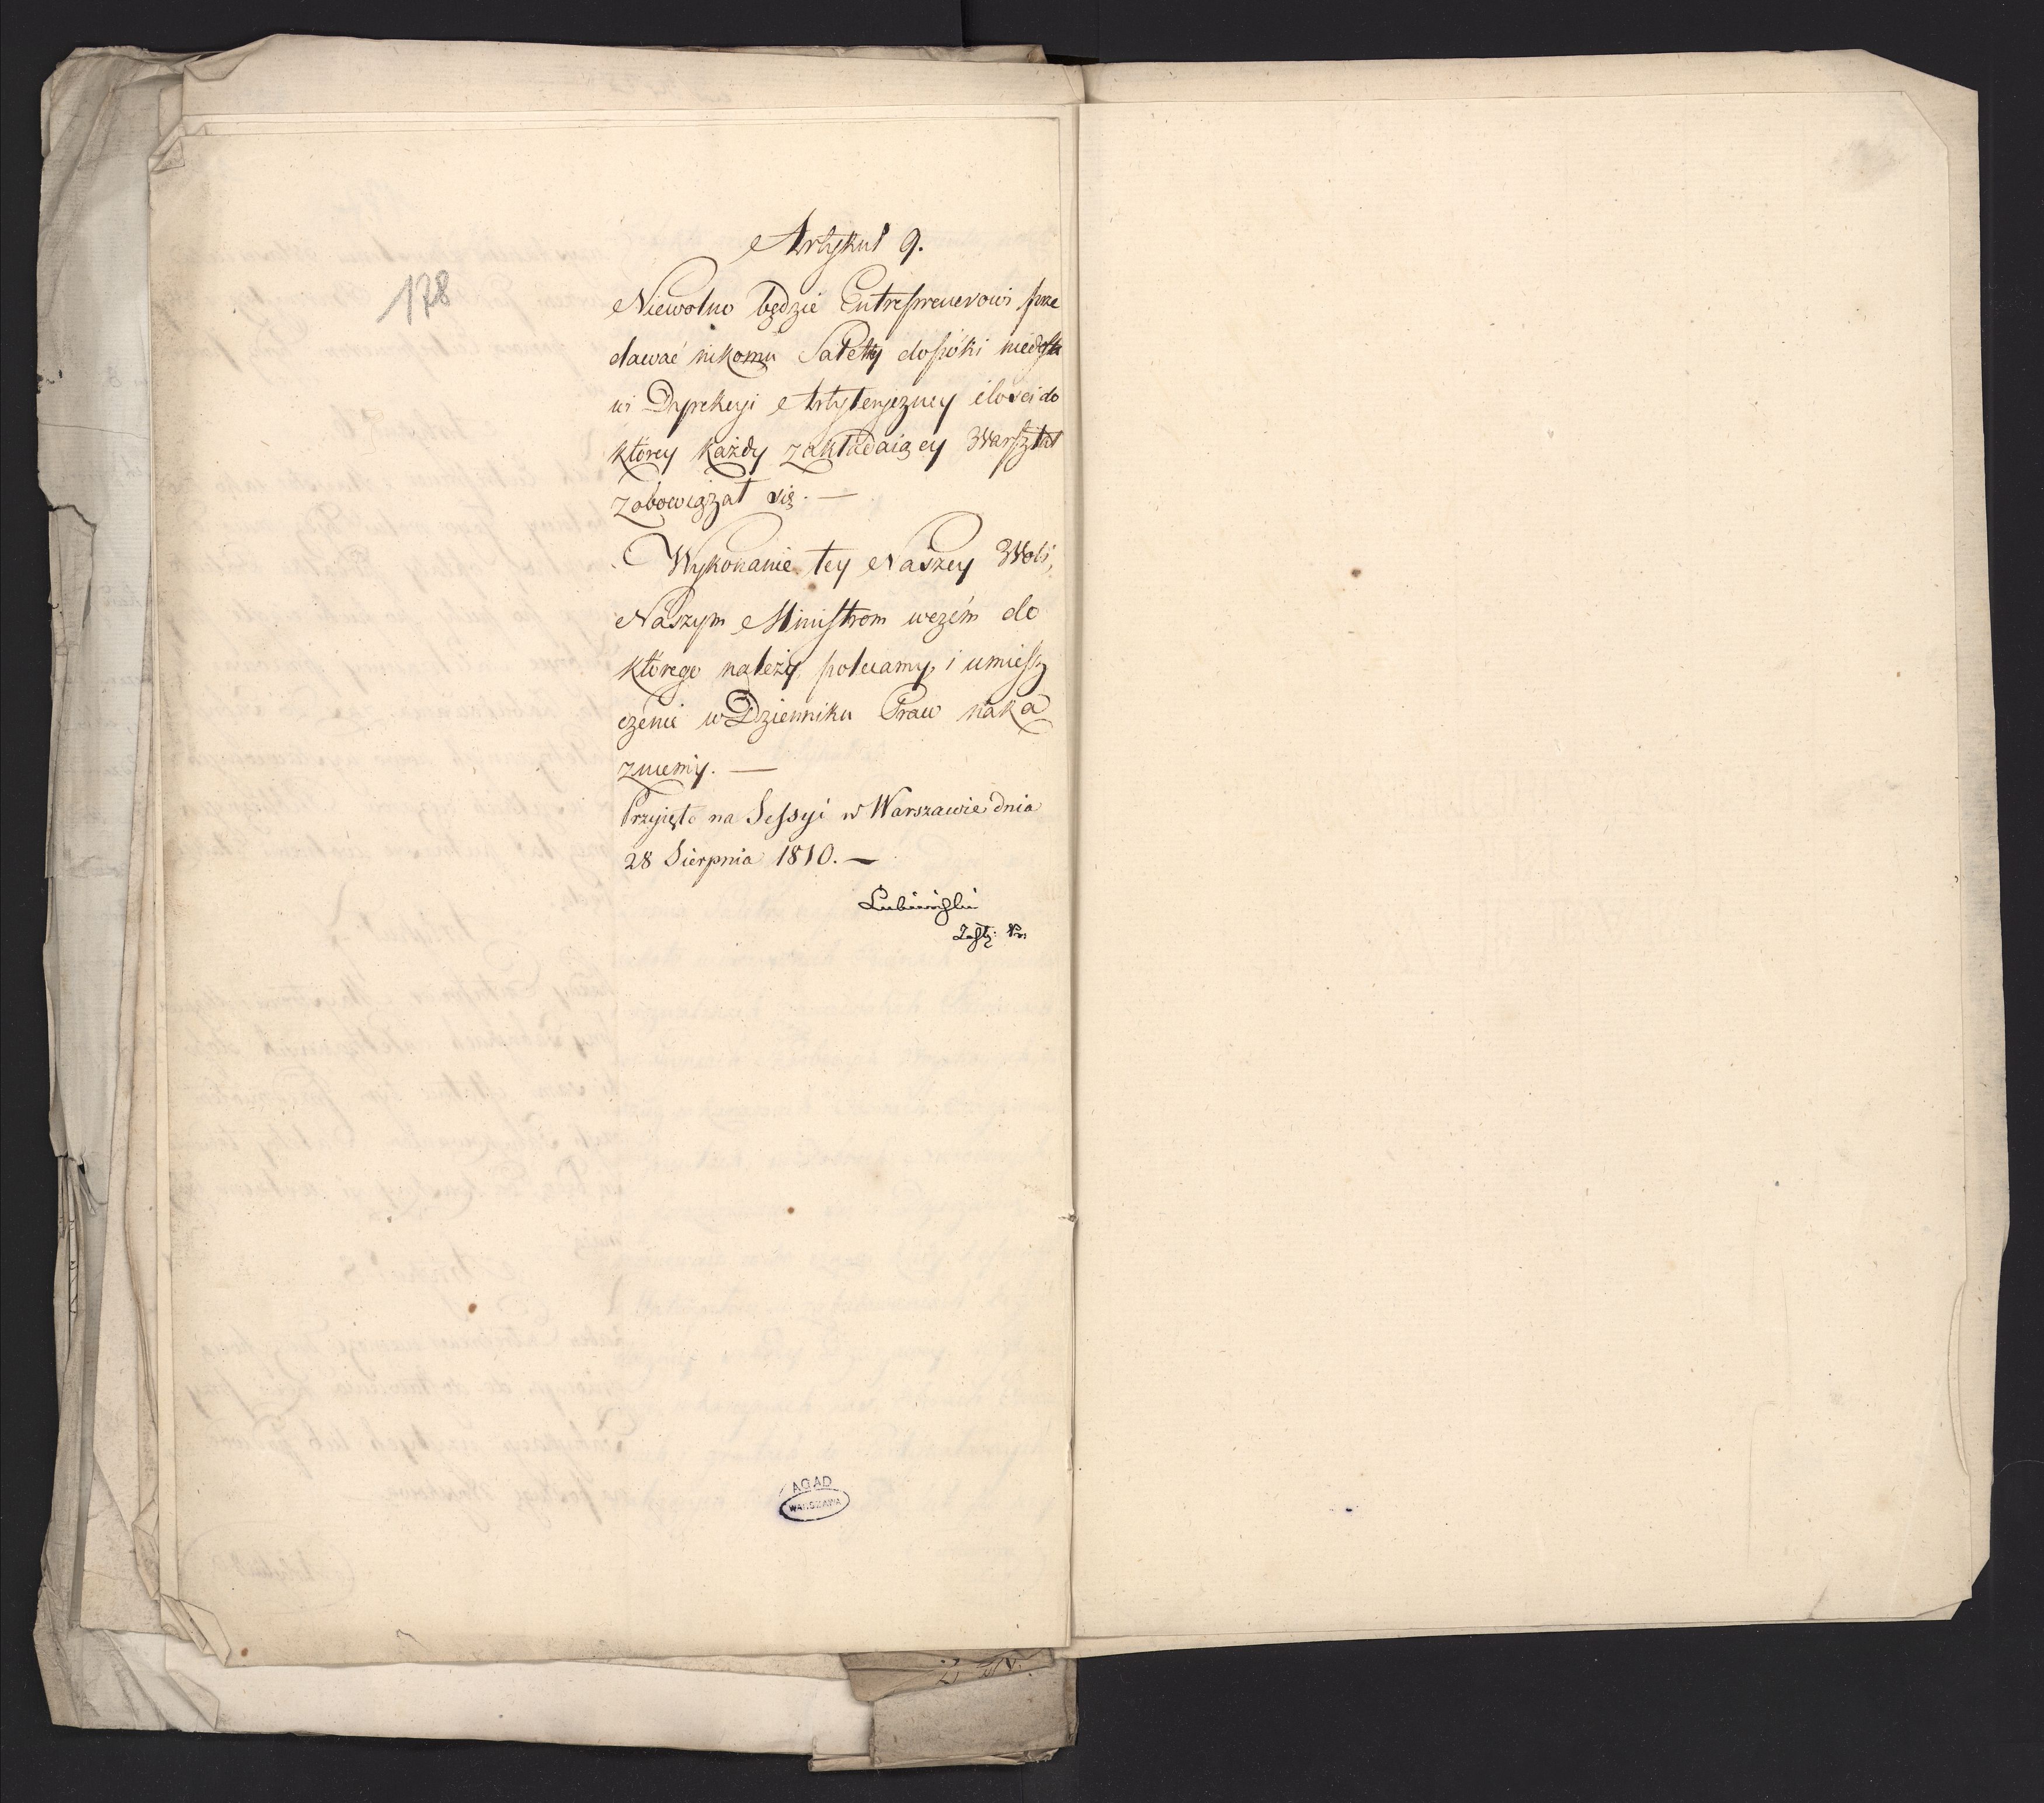 178
Artykuł 9.
Niewolno będzie Entreprenerowi prze
dawać nikomu Saletry dopóki niedosta
wi Dyrekcyi Artyleryczney ilości do
którey każdy zakładaiący Warsztat
zobowiązał się. —
Wykonanie tey Naszey Woli,
Naszym Ministrom wczém do
którego należy, polecamy, i umiesz
czenie w Dzienniku Praw naka
zuiemy. —
Przyięto na Sessyi w Warszawie dnia
28 Sierpnia 1810. —
Lubieński
Zastę: Pr:
AGAD
WARSZAWA